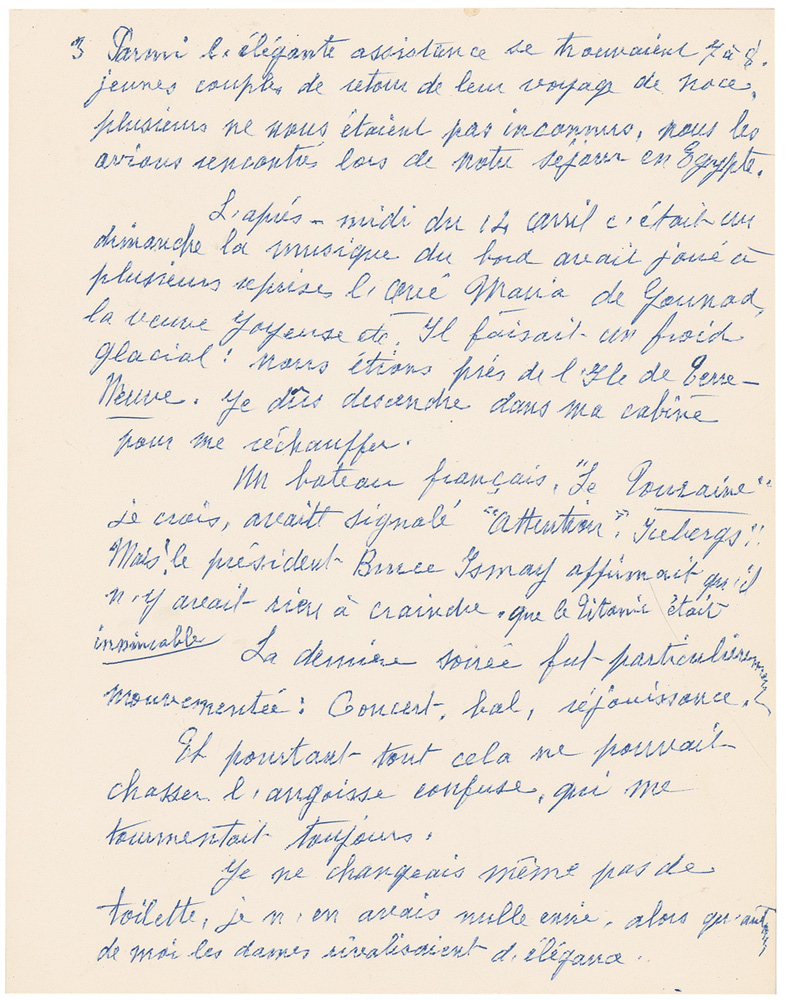 3 Parmi l'élégante assistance se trouvaient 7 à 8
jeunes couples de retour de leur voyage de noce,
plusieurs ne nous étaient pas inconnus, nous les
avions rencontrés lors de notre séjour en Egypte.
L'après-midi du 14 avril c'était un
dimanche la musique du bord avait joué à
plusieurs reprises l'Avé Maria de Gounod,
la veuve Joyeuse etc. Il faisait un froid
glacial! nous étions près de l'Ile de Terre-
Neuve. Je dûs descendre dans ma cabine
pour me réchauffer.
Un bateau français, "Le Touraine"
je crois, avait signalé "Attention", Icebergs"!
Mais le président Bruce Ismay affirmait qu'il
n'y avait rien à craindre, que le Titanic était
La dernière soirée fut particulièrement
mouvementée: Concert, bal, réjouissance.
Et pourtant tout cela ne pouvait
chasser l'angoisse confuse, qui me
tourmentait toujours.
Je ne changeais même pas de
toilette, je n'en avais nulle envie, alors qu'autour
de moi les dames rivalisaient d'élégance.